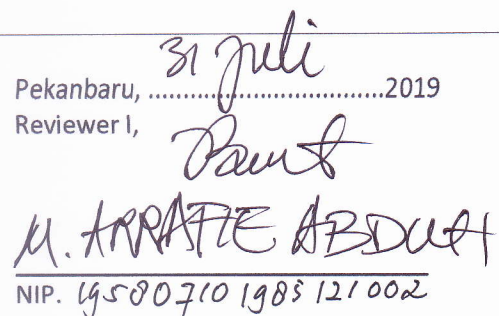 Pekanbaru, 31 Juli 2019
Reviewer I,
M. ARRAFIE ABDUH
NIP. 19580710 1985 121 002